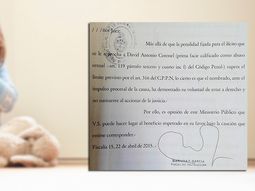 / / /ñor Juez:
Más allá de que la penalidad fijada para el ilícito que
se le reprocha a David Antonio Coronel (prima facie calificado como abuso
sexual -art. 119 párrafo tercero y cuarto inc. f) del Código Penal-) supera el
límite previsto por el art. 316 del C.P.P.N, lo cierto es que el nombrado, ante el
impulso procesal de la causa, ha demostrado su voluntad de estar a derecho
y no sustraerse al accionar de la justicia.
Por ello, es opinión de este Ministerio Público que
V.S. puede hacer lugar al beneficio impetrado en su favor bajo la caución que
estime corresponder.-
Fiscalía 15, 22 de abril de 2015.-